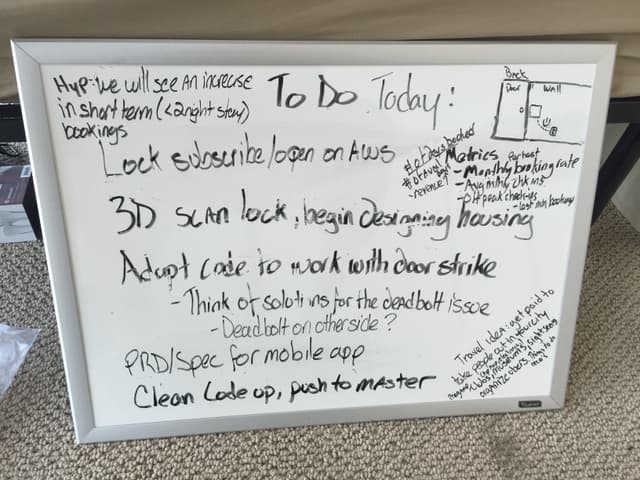 Hyp: we will see an increase
in short term (<2night stay)
bookings
To Do Today:
Back
Door
Wall
Lock subscribe/open on AWS
# of days booked
# of avail days
revenue?
Metrics for test
- Monthly booking rate
- Avg mnthly chk ins
- Off peak checkins
- last min bookings
3D scan lock, begin designing housing
Adapt code to work with door strike
- Think of solutions for the deadbolt issue
- Deadbolt on other side?
PRD/Spec for mobile app
Clean Code up, push to master
Travel Idea: get paid to
take people out in your city
clubs, museums, sightseeing
organize ubers, things to